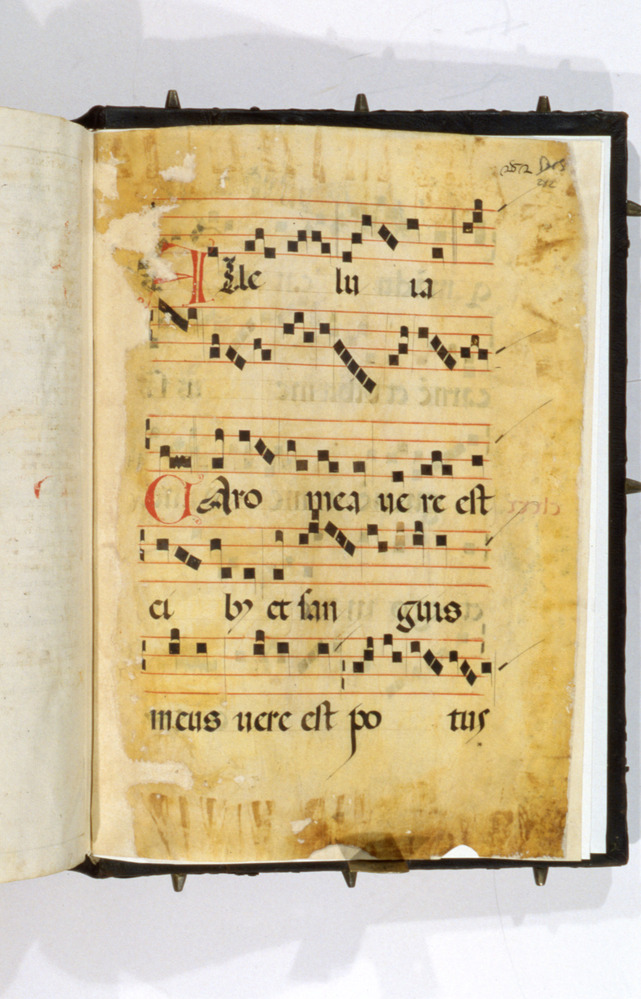 Alle lu ia
Caro mea ue re est
ci bꝰ et san guis
meus uere est po tus